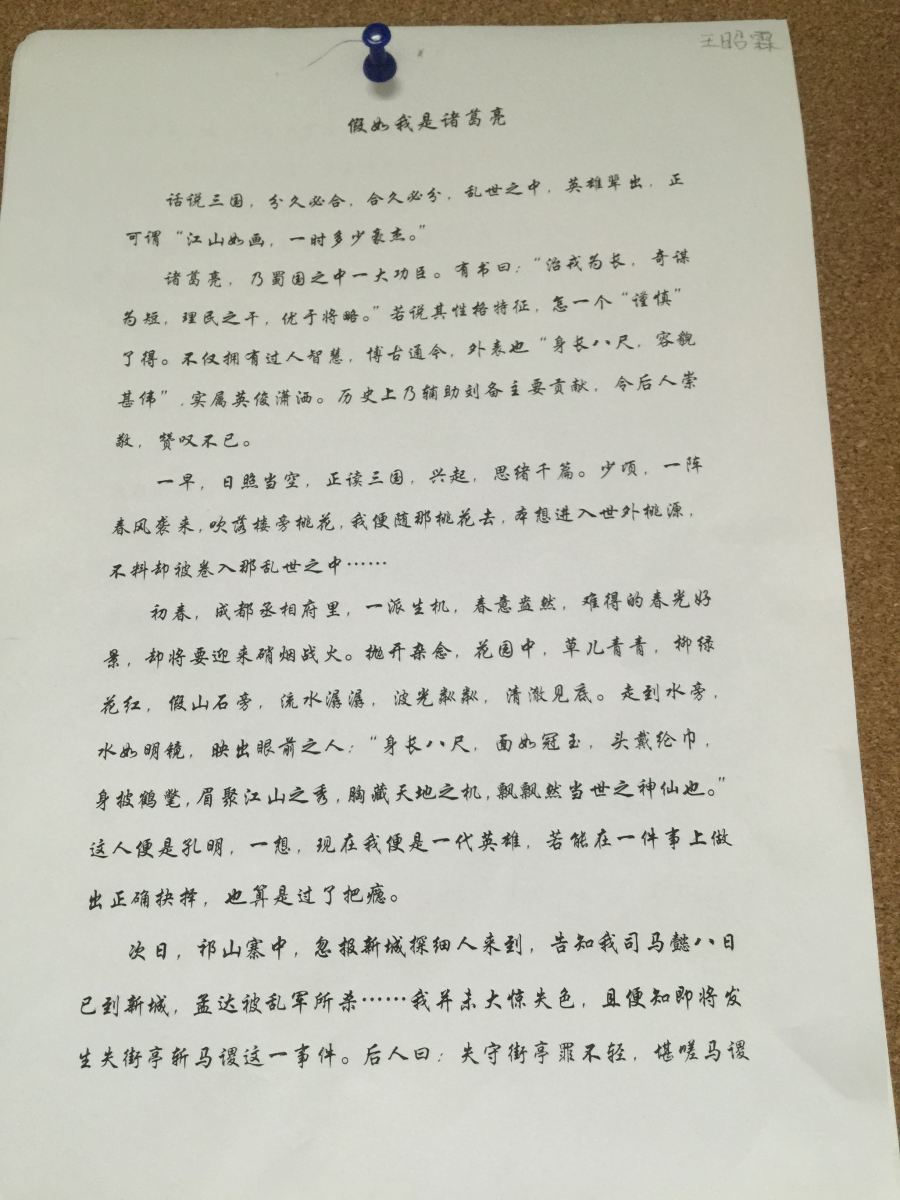 王昭霖
假如我是诸葛亮
话说三国，分久必合，合久必分，乱世之中，英雄辈出，正
可谓“江山如画，一时多少豪杰。”
诸葛亮，乃蜀国之中一大功臣。有书曰：“治戎为长，奇谋
为短，理民之干，优于将略。”若说其性格特征，怎一个“谨慎”
了得。不仅拥有过人智慧，博古通今，外表也“身长八尺，容貌
甚伟”，实属英俊潇洒。历史上乃辅助刘备主要贡献，令后人崇
敬，赞叹不已。
一早，日照当空，正读三国，兴起，思绪千篇。少顷，一阵
春风袭来，吹落楼旁桃花，我便随那桃花去，本想进入世外桃源，
不料却被卷入那乱世之中……
初春，成都丞相府里，一派生机，春意盎然，难得的春光好
景，却将要迎来硝烟战火。抛开杂念，花园中，草儿青青，柳绿
花红，假山石旁，流水潺潺，波光粼粼，清澈见底。走到水旁，
水如明镜，映出眼前之人：“身长八尺，面如冠玉，头戴纶巾，
身披鹤氅，眉聚江山之秀，胸藏天地之机，飘飘然当世之神仙也。”
这人便是孔明，一想，现在我便是一代英雄，若能在一件事上做
出正确抉择，也算是过了把瘾。
次日，祁山寨中，忽报新城探细人来到，告知我司马懿八日
已到新城，孟达被乱军所杀……我并未大惊失色，且便知即将发
生失街亭斩马谡这一事件。后人曰：失守街亭罪不轻，堪嗟马谡